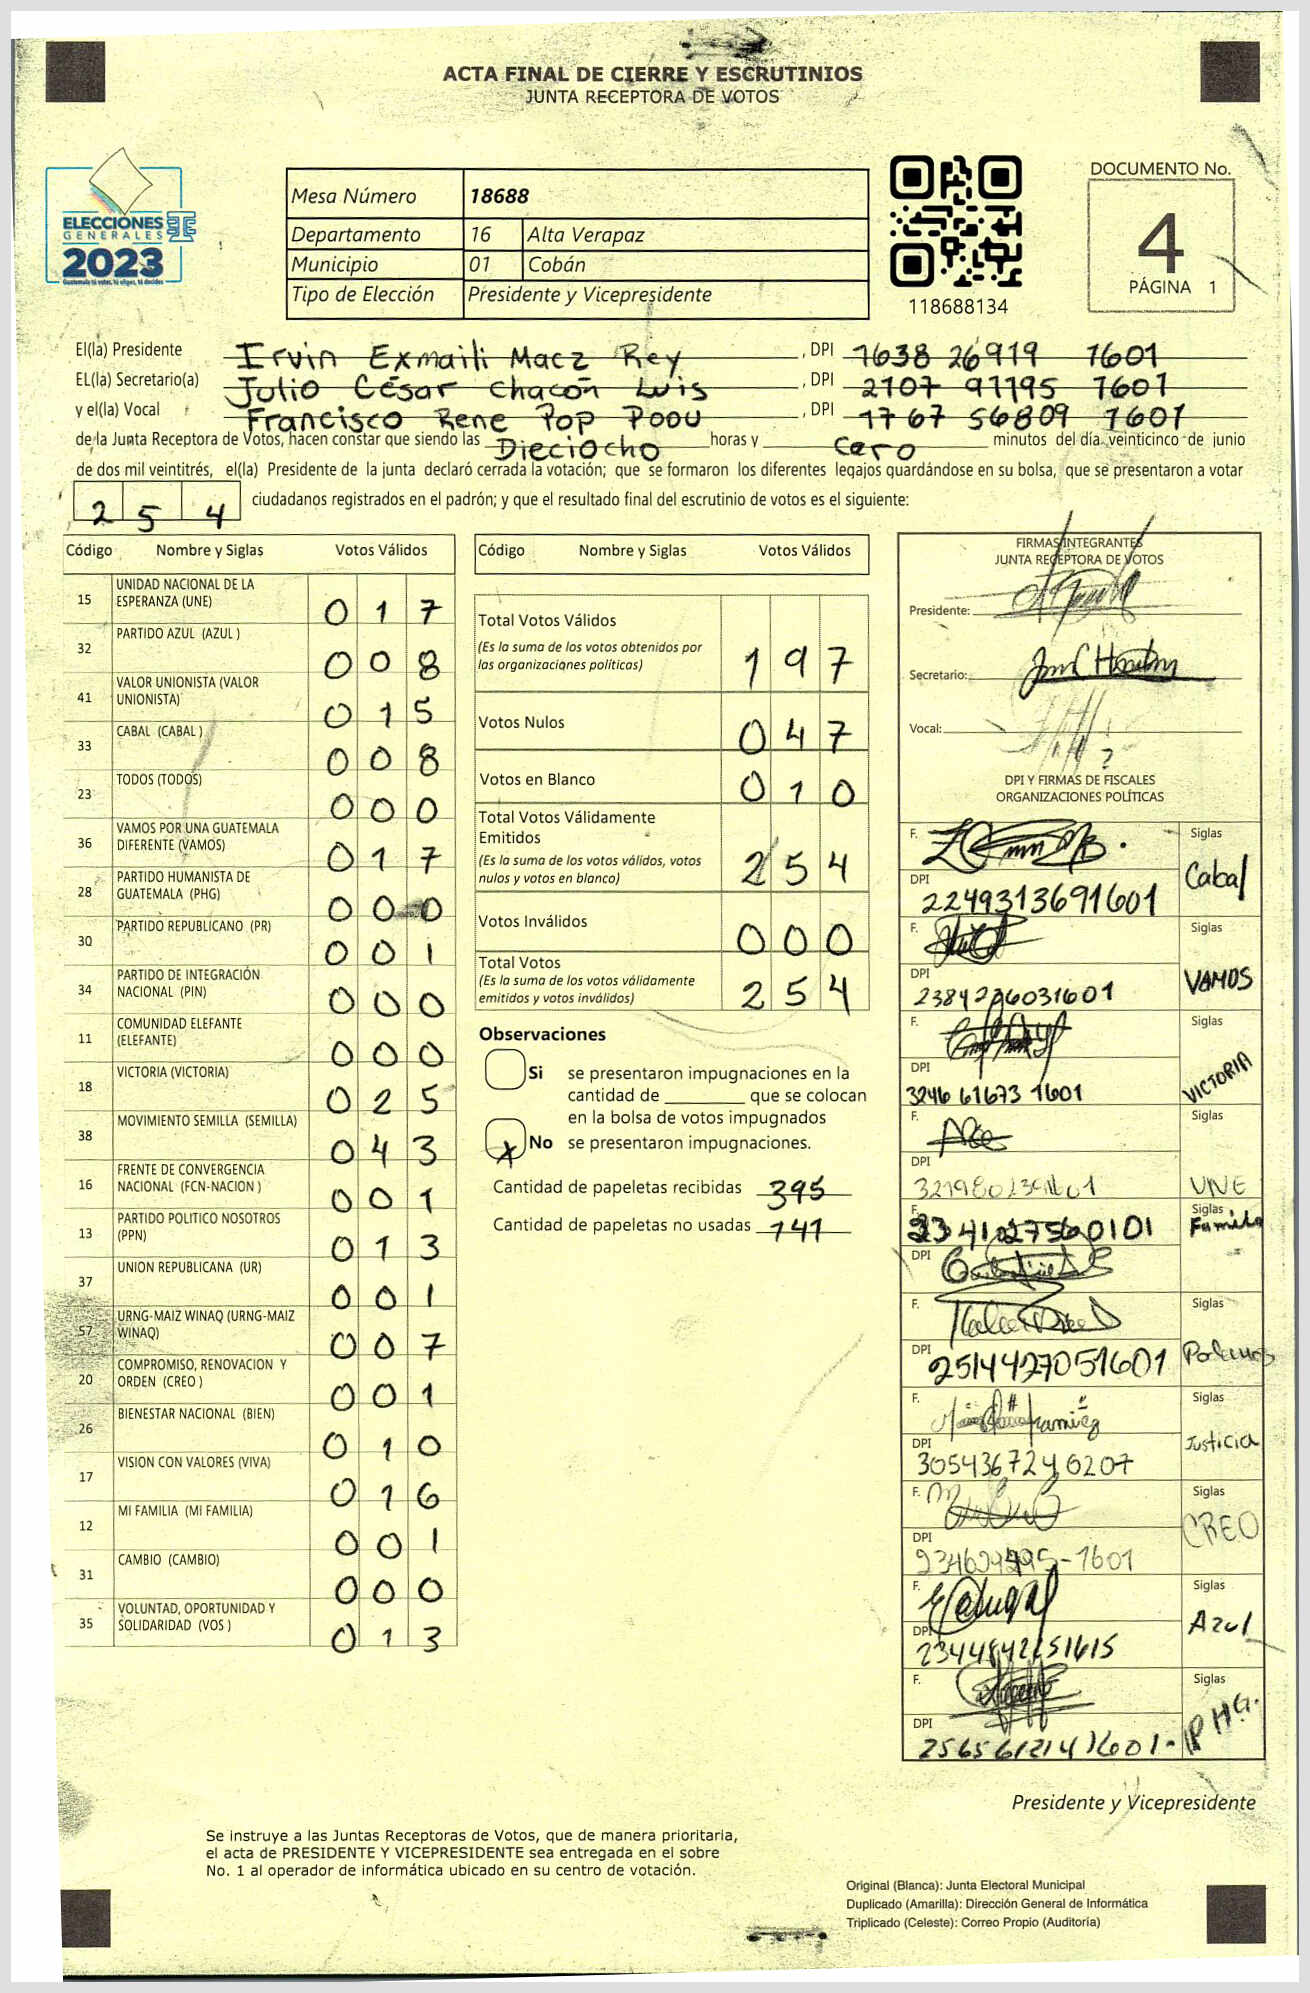 ACTA FINAL DE CIERRE Y ESCRUTINIOS
JUNTA RECEPTORA DE VOTOS
ELECCIONES
GENERALES
2023
Guatemala tú votas, tú eliges, tú decides
Mesa Número 18688
Departamento 16 Alta Verapaz
Municipio 01 Cobán
Tipo de Elección Presidente y Vicepresidente
118688134
DOCUMENTO No.
4
PÁGINA 1
El(la) Presidente Irvin Exmaili Macz Rey , DPI 1638 26919 1601
EL(la) Secretario(a) Julio César Chacón Luis , DPI 2107 91195 1601
y el(la) Vocal Francisco Rene Pop Poou , DPI 1767 56809 1601
de la Junta Receptora de Votos, hacen constar que siendo las Dieciocho horas y Cero minutos del día veinticinco de junio
de dos mil veintitrés, el(la) Presidente de la junta declaró cerrada la votación; que se formaron los diferentes legajos guardándose en su bolsa, que se presentaron a votar
2 5 4 ciudadanos registrados en el padrón; y que el resultado final del escrutinio de votos es el siguiente:
Código Nombre y Siglas Votos Válidos
15 UNIDAD NACIONAL DE LA
ESPERANZA (UNE) 0 1 7
32 PARTIDO AZUL (AZUL ) 0 0 8
41 VALOR UNIONISTA (VALOR
UNIONISTA) 0 1 5
33 CABAL (CABAL ) 0 0 8
23 TODOS (TODOS) 0 0 0
36 VAMOS POR UNA GUATEMALA
DIFERENTE (VAMOS) 0 1 7
28 PARTIDO HUMANISTA DE
GUATEMALA (PHG) 0 0 0
30 PARTIDO REPUBLICANO (PR) 0 0 1
34 PARTIDO DE INTEGRACIÓN
NACIONAL (PIN) 0 0 0
11 COMUNIDAD ELEFANTE
(ELEFANTE) 0 0 0
18 VICTORIA (VICTORIA) 0 2 5
38 MOVIMIENTO SEMILLA (SEMILLA) 0 4 3
16 FRENTE DE CONVERGENCIA
NACIONAL (FCN-NACION ) 0 0 1
13 PARTIDO POLITICO NOSOTROS
(PPN) 0 1 3
37 UNION REPUBLICANA (UR) 0 0 1
57 URNG-MAIZ WINAQ (URNG-MAIZ
WINAQ) 0 0 7
20 COMPROMISO, RENOVACION Y
ORDEN (CREO ) 0 0 1
26 BIENESTAR NACIONAL (BIEN) 0 1 0
17 VISION CON VALORES (VIVA) 0 1 6
12 MI FAMILIA (MI FAMILIA) 0 0 1
31 CAMBIO (CAMBIO) 0 0 0
35 VOLUNTAD, OPORTUNIDAD Y
SOLIDARIDAD (VOS ) 0 1 3
Código Nombre y Siglas Votos Válidos
Total Votos Válidos
(Es la suma de los votos obtenidos por
las organizaciones políticas) 1 9 7
Votos Nulos 0 4 7
Votos en Blanco 0 1 0
Total Votos Válidamente
Emitidos
(Es la suma de los votos válidos, votos
nulos y votos en blanco) 2 5 4
Votos Inválidos 0 0 0
Total Votos
(Es la suma de los votos válidamente
emitidos y votos inválidos) 2 5 4
Observaciones
Si se presentaron impugnaciones en la
cantidad de ________ que se colocan
en la bolsa de votos impugnados
X No se presentaron impugnaciones.
Cantidad de papeletas recibidas 395
Cantidad de papeletas no usadas 141
FIRMAS INTEGRANTES
JUNTA RECEPTORA DE VOTOS
Presidente:
Secretario:
Vocal:
DPI Y FIRMAS DE FISCALES
ORGANIZACIONES POLÍTICAS
F. Siglas
Cabal
DPI 2249313691601
F. Siglas
VAMOS
DPI
F. Siglas
VICTORIA
DPI 3246 61673 1601
F. Siglas
UNE
DPI
F. Siglas
Familia
DPI
F. Siglas
DPI 2514427051601
F. Siglas
Justicia
DPI 3054367240207
F. Siglas
CREO
DPI
F. Siglas
Azul
DPI
F. Siglas
PHG.
DPI 2565612141601
Presidente y Vicepresidente
Se instruye a las Juntas Receptoras de Votos, que de manera prioritaria,
el acta de PRESIDENTE Y VICEPRESIDENTE sea entregada en el sobre
No. 1 al operador de informática ubicado en su centro de votación.
Original (Blanca): Junta Electoral Municipal
Duplicado (Amarilla): Dirección General de Informática
Triplicado (Celeste): Correo Propio (Auditoría)